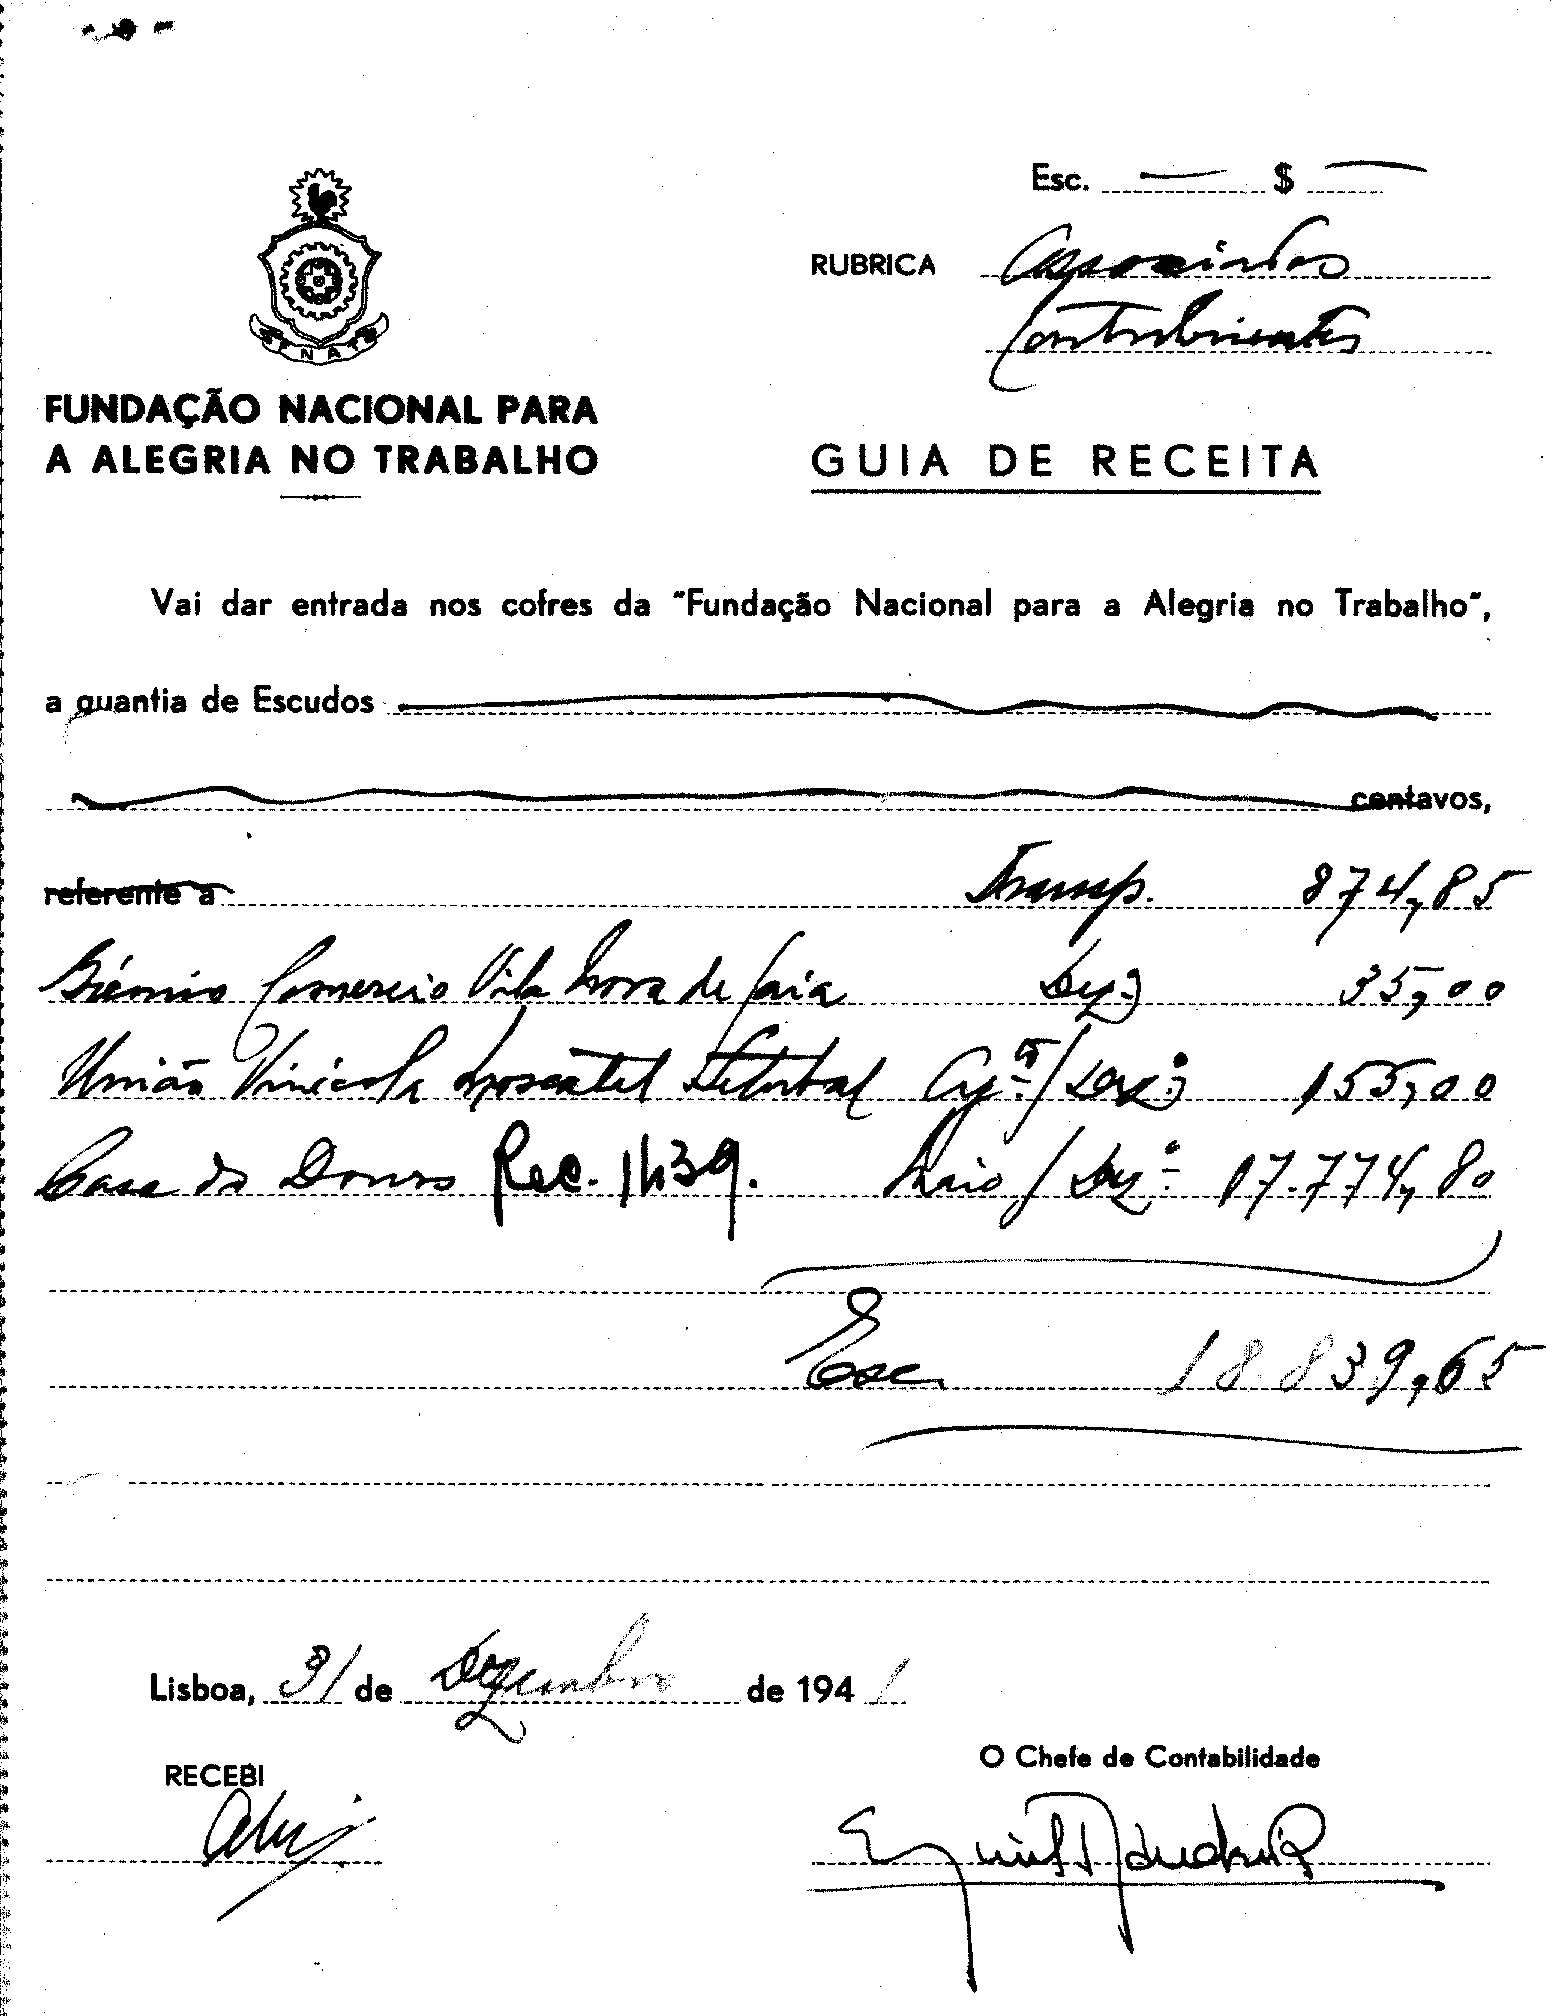 Esc. — $ —
RUBRICA
Contribuintes
FNAT
FUNDAÇÃO NACIONAL PARA
A ALEGRIA NO TRABALHO
GUIA DE RECEITA
Vai dar entrada nos cofres da "Fundação Nacional para a Alegria no Trabalho",
a quantia de Escudos
centavos,
referente a Transp. 874,85
Grémio Comercio Vila Nova de Gaia Dez.º 35,00
União Vinícola Moscatel Setubal Ag.to/Dez.º 155,00
Casa do Douro Rec. 1439. Maio/Dez.º 17.774,80
Esc. 18.839,65
Lisboa, 31 de Dezembro de 1941
RECEBI
O Chefe de Contabilidade